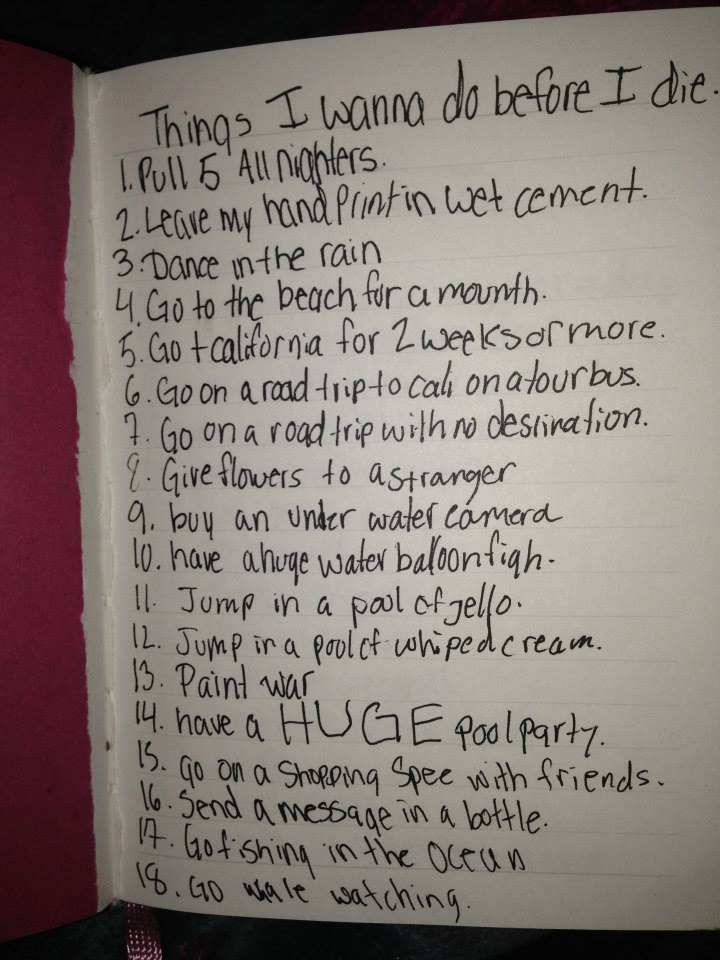 Things I wanna do before I die.
1. Pull 5 All nighters.
2. Leave my hand Print in wet cement.
3. Dance in the rain
4. Go to the beach for a mounth.
5. Go t california for 2 weeks or more.
6. Go on a road trip to cali on a tour bus.
7. Go on a road trip with no desination.
8. Give flowers to a stranger
9. buy an under water camera
10. have a huge water balloon figh.
11. Jump in a pool of jello.
12. Jump in a pool of whiped cream.
13. Paint war
14. have a HUGE pool party.
15. go on a Shopping Spee with friends.
16. Send a message in a bottle.
17. Go fishing in the Ocean
18. GO wale watching.